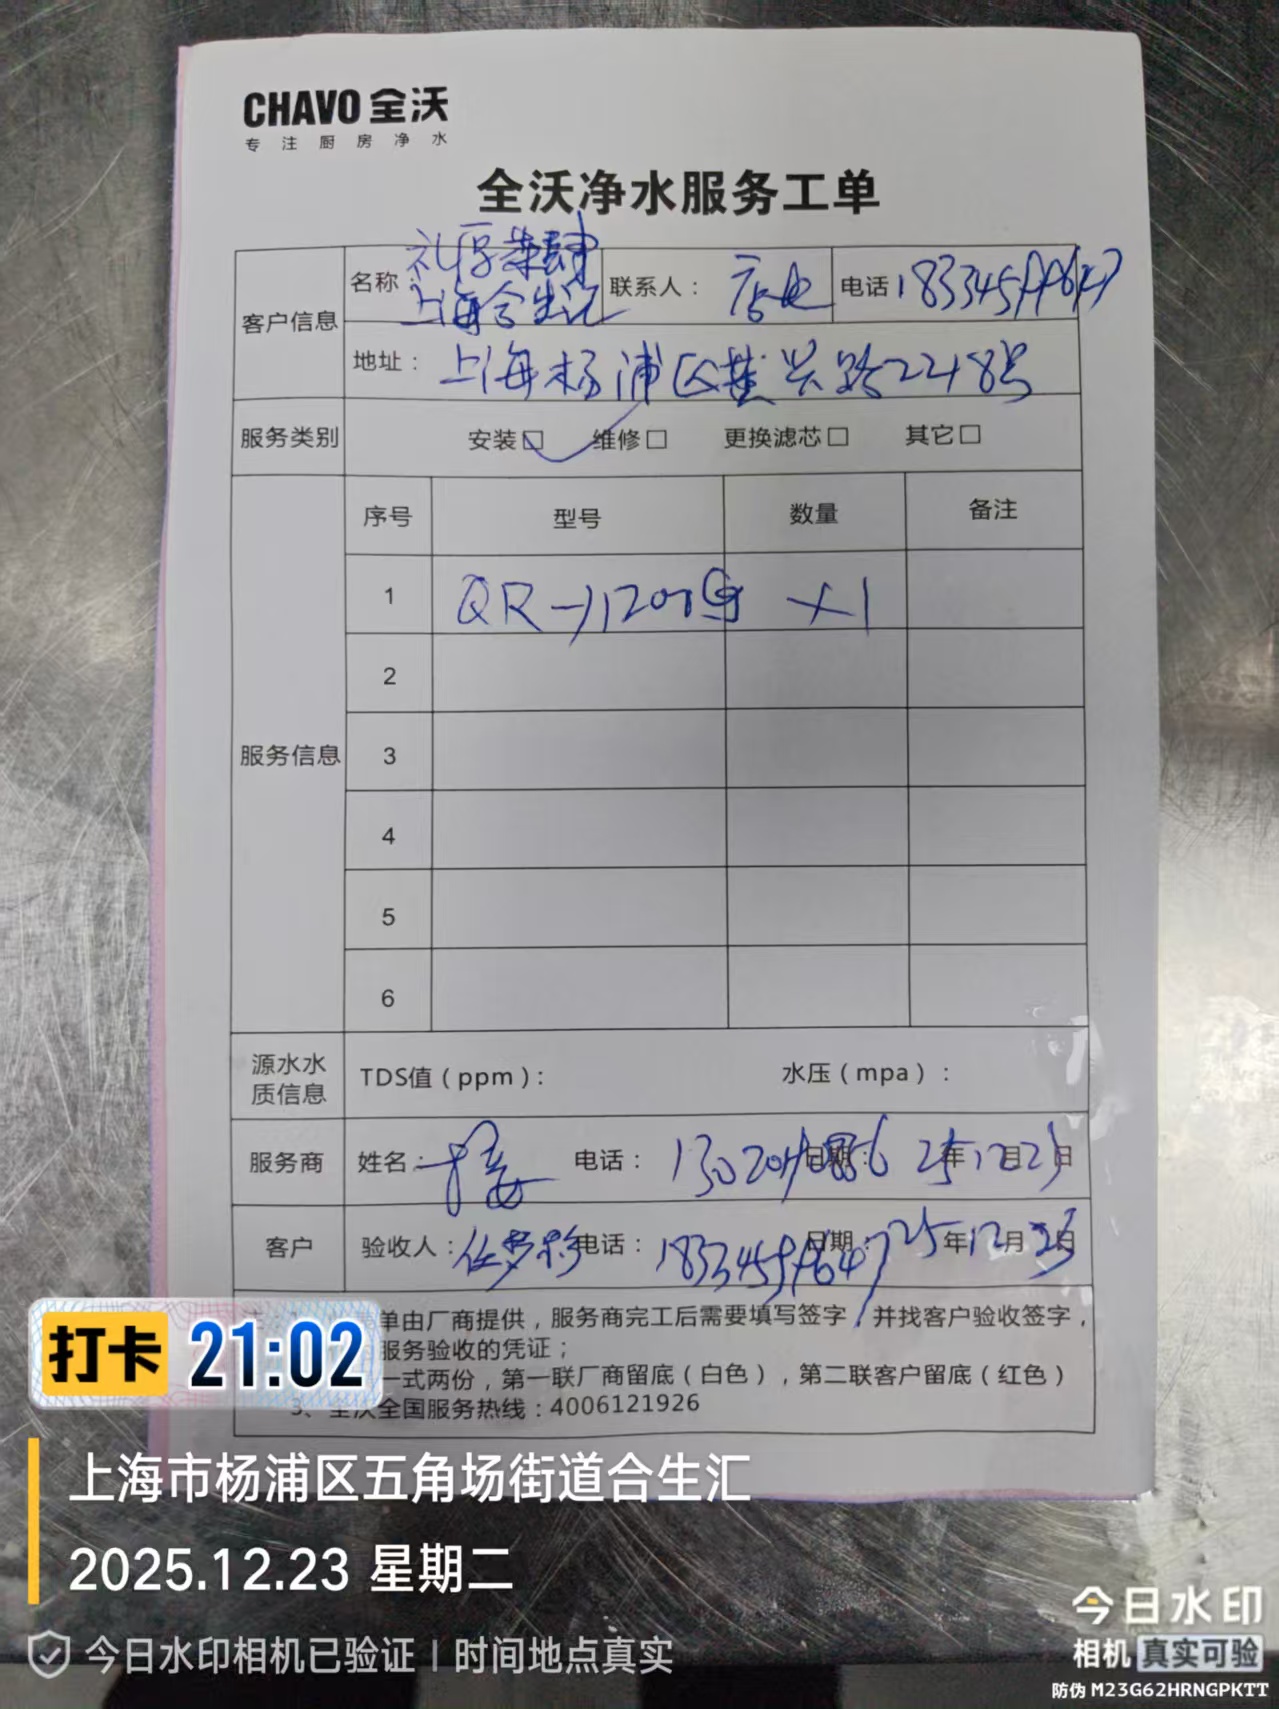 CHAVO 全沃
专注厨房净水
全沃净水服务工单
客户信息 名称: 上海合生汇 联系人: 店 电话
地址: 上海杨浦区黄兴路2248号
服务类别 安装□ 维修□ 更换滤芯□ 其它□
服务信息 序号 型号 数量 备注
1 ×1
2
3
4
5
6
源水水质信息 TDS值(ppm): 水压(mpa):
服务商 姓名: 电话: 日期: 25年12月23日
客户 验收人: 电话: 日期: 25年12月23日
单由厂商提供,服务商完工后需要填写签字,并找客户验收签字,
服务验收的凭证;
一式两份,第一联厂商留底(白色),第二联客户留底(红色)
3、全沃全国服务热线:4006121926
打卡 21:02
上海市杨浦区五角场街道合生汇
2025.12.23 星期二
今日水印相机已验证 | 时间地点真实
今日水印
相机 真实可验
防伪 M23G62HRNGPKTT